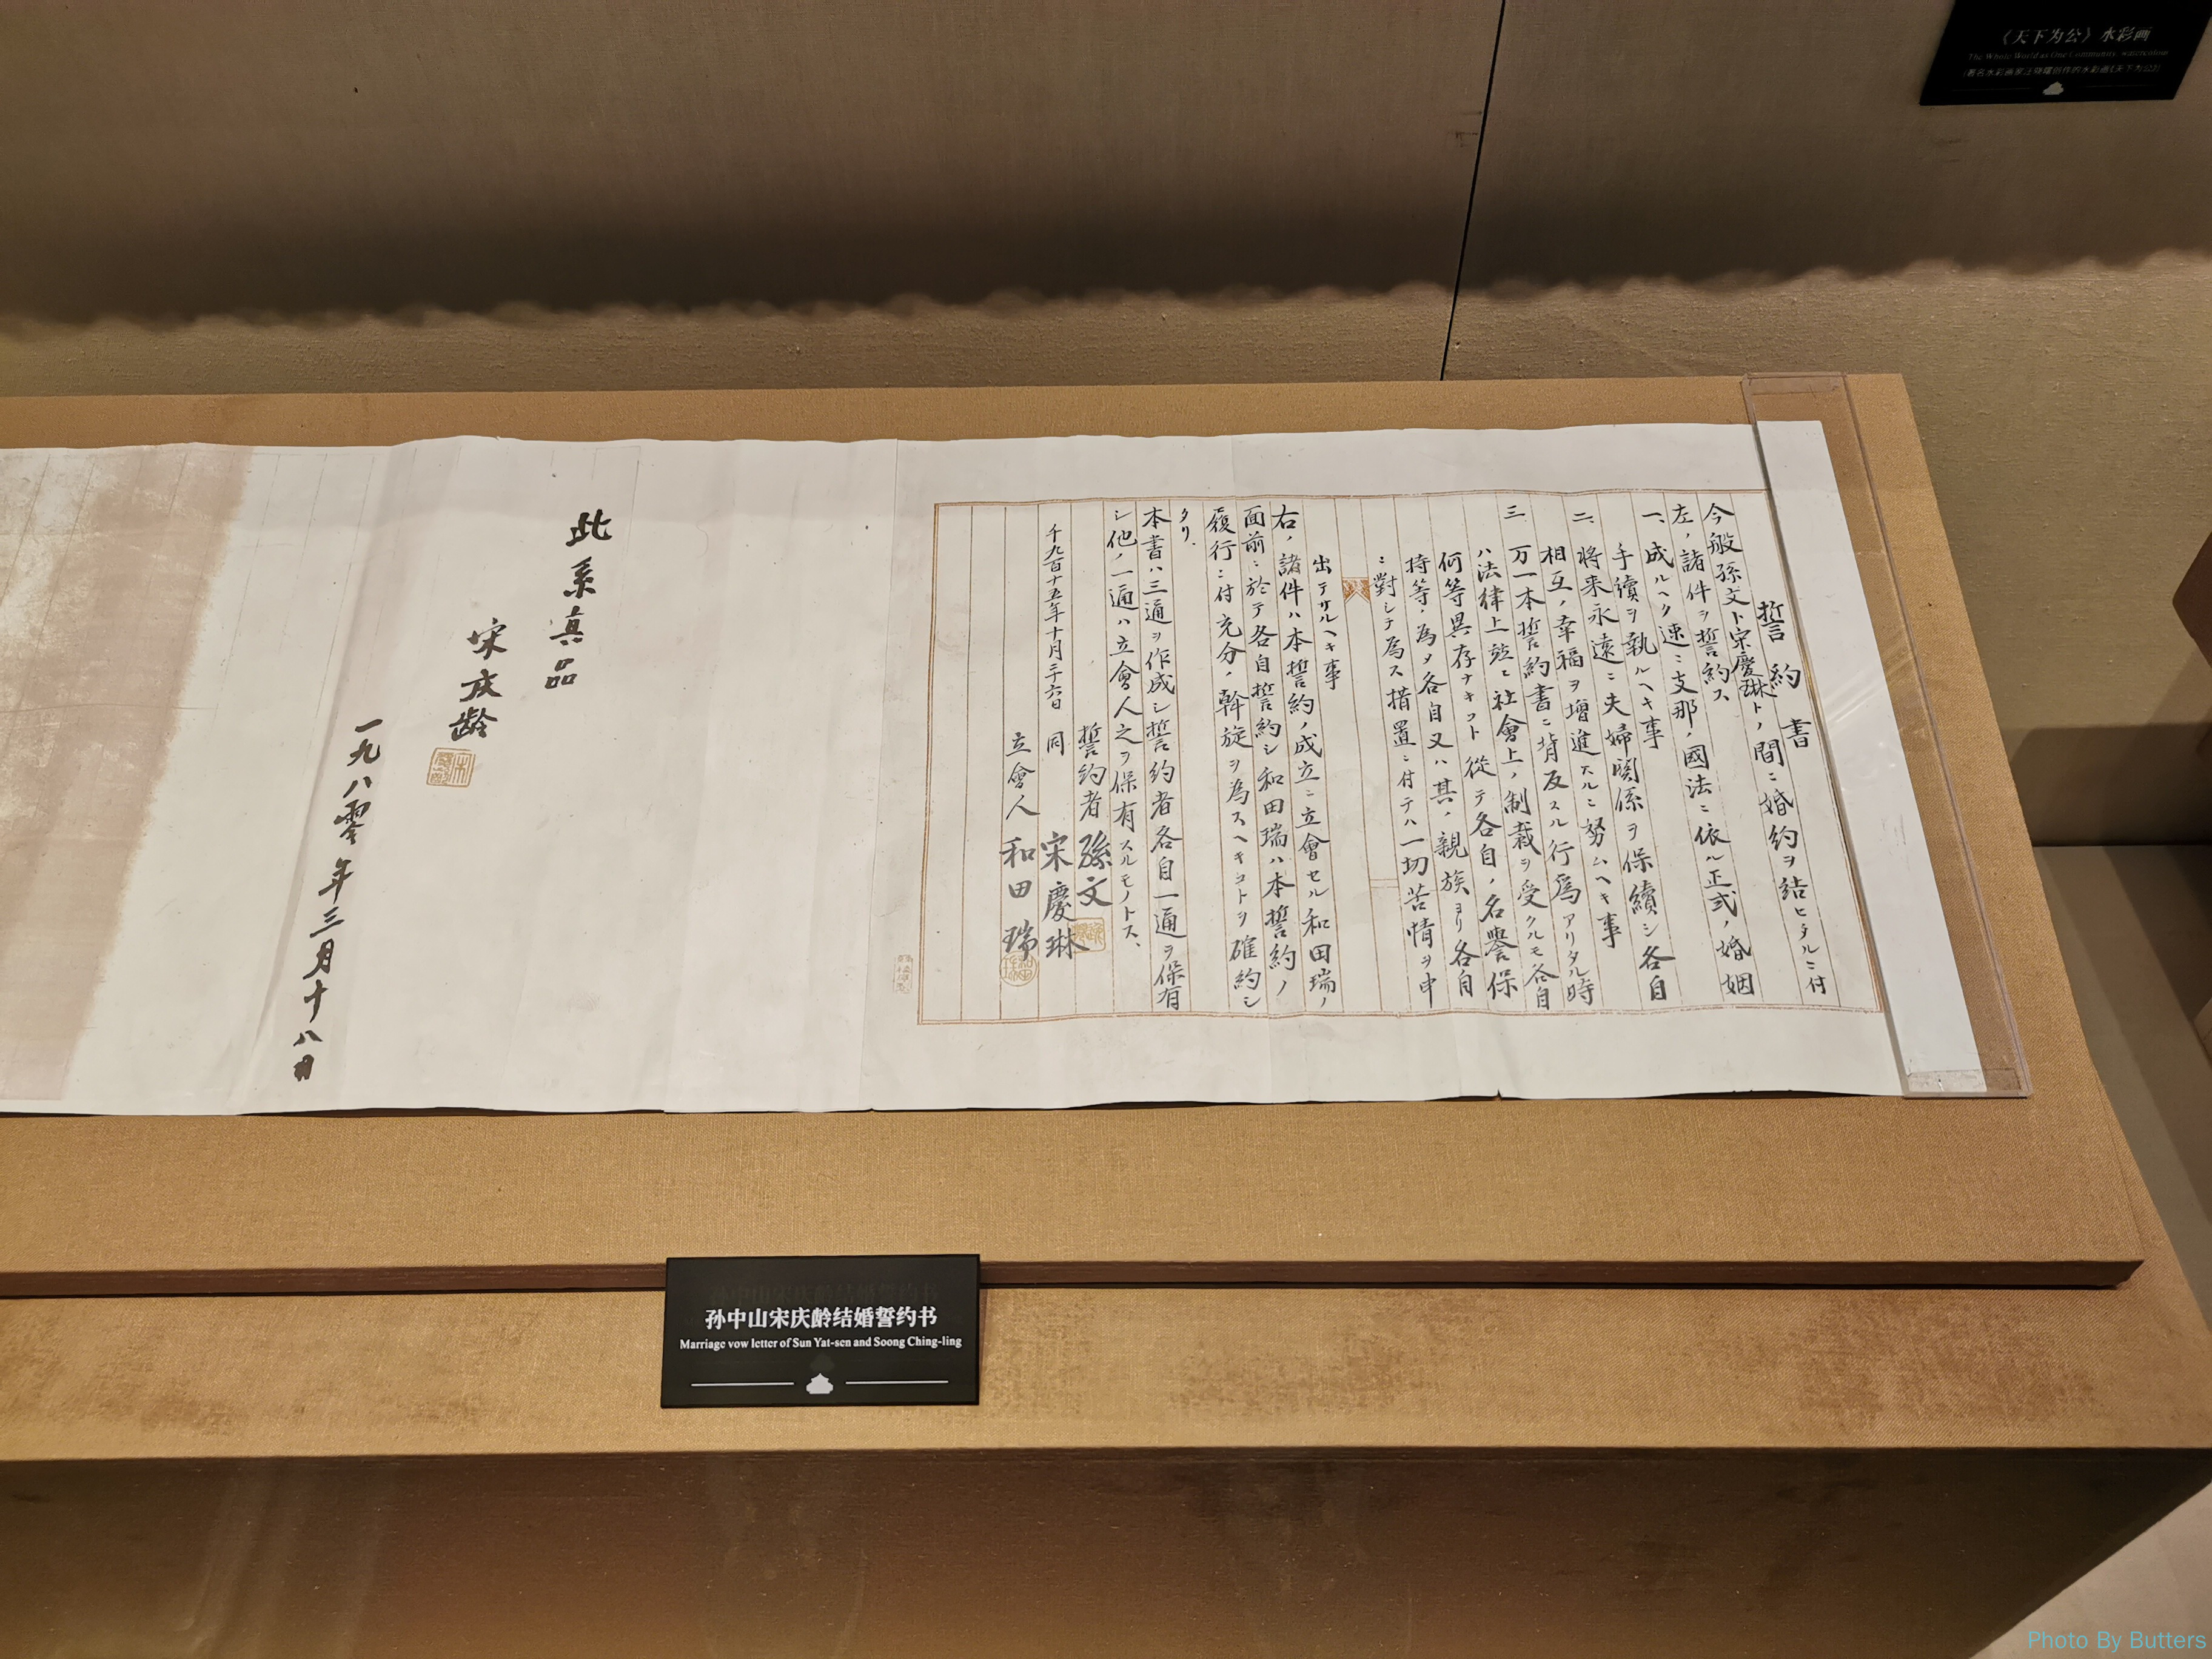 誓約書
今般孫文ト宋慶琳トノ間ニ婚約ヲ結ヒタルニ付
左ノ諸件ヲ誓約ス
一、成ルヘク速ニ支那ノ國法ニ依ル正式ノ婚姻
手續ヲ執ルヘキ事
二、将来永遠ニ夫婦関係ヲ保續シ各自
相互ノ幸福ヲ增進スルニ努ムヘキ事
三、万一本誓約書ニ背反スル行爲アリタル時
ハ法律上竝ニ社會上ノ制裁ヲ受クルモ各自
何等異存ナキコト従テ各自ノ名譽保
持等ノ為メ各自又ハ其ノ親族ヨリ各自
ニ對シテ為ス措置ニ付テハ一切苦情ヲ申
出テサルヘキ事
右ノ諸件ハ本誓約ノ成立ニ立會セル和田瑞ノ
面前ニ於テ各自誓約シ和田瑞ハ本誓約ノ
履行ニ付充分ノ斡旋ヲ為スヘキコトヲ確約シ
タリ
本書ハ三通ヲ作成シ誓約者各自一通ヲ保有
シ他ノ一通ハ立會人之ヲ保有スルモノトス、
誓約者 孫文
千九百十五年十月二十六日 同 宋慶琳
立會人 和田瑞
此系真品
宋庆龄
一九八零年三月十八日
《天下为公》水彩画
The Whole World as One Community, watercolour
孙中山宋庆龄结婚誓约书
Marriage vow letter of Sun Yat-sen and Soong Ching-ling
Photo By Butters